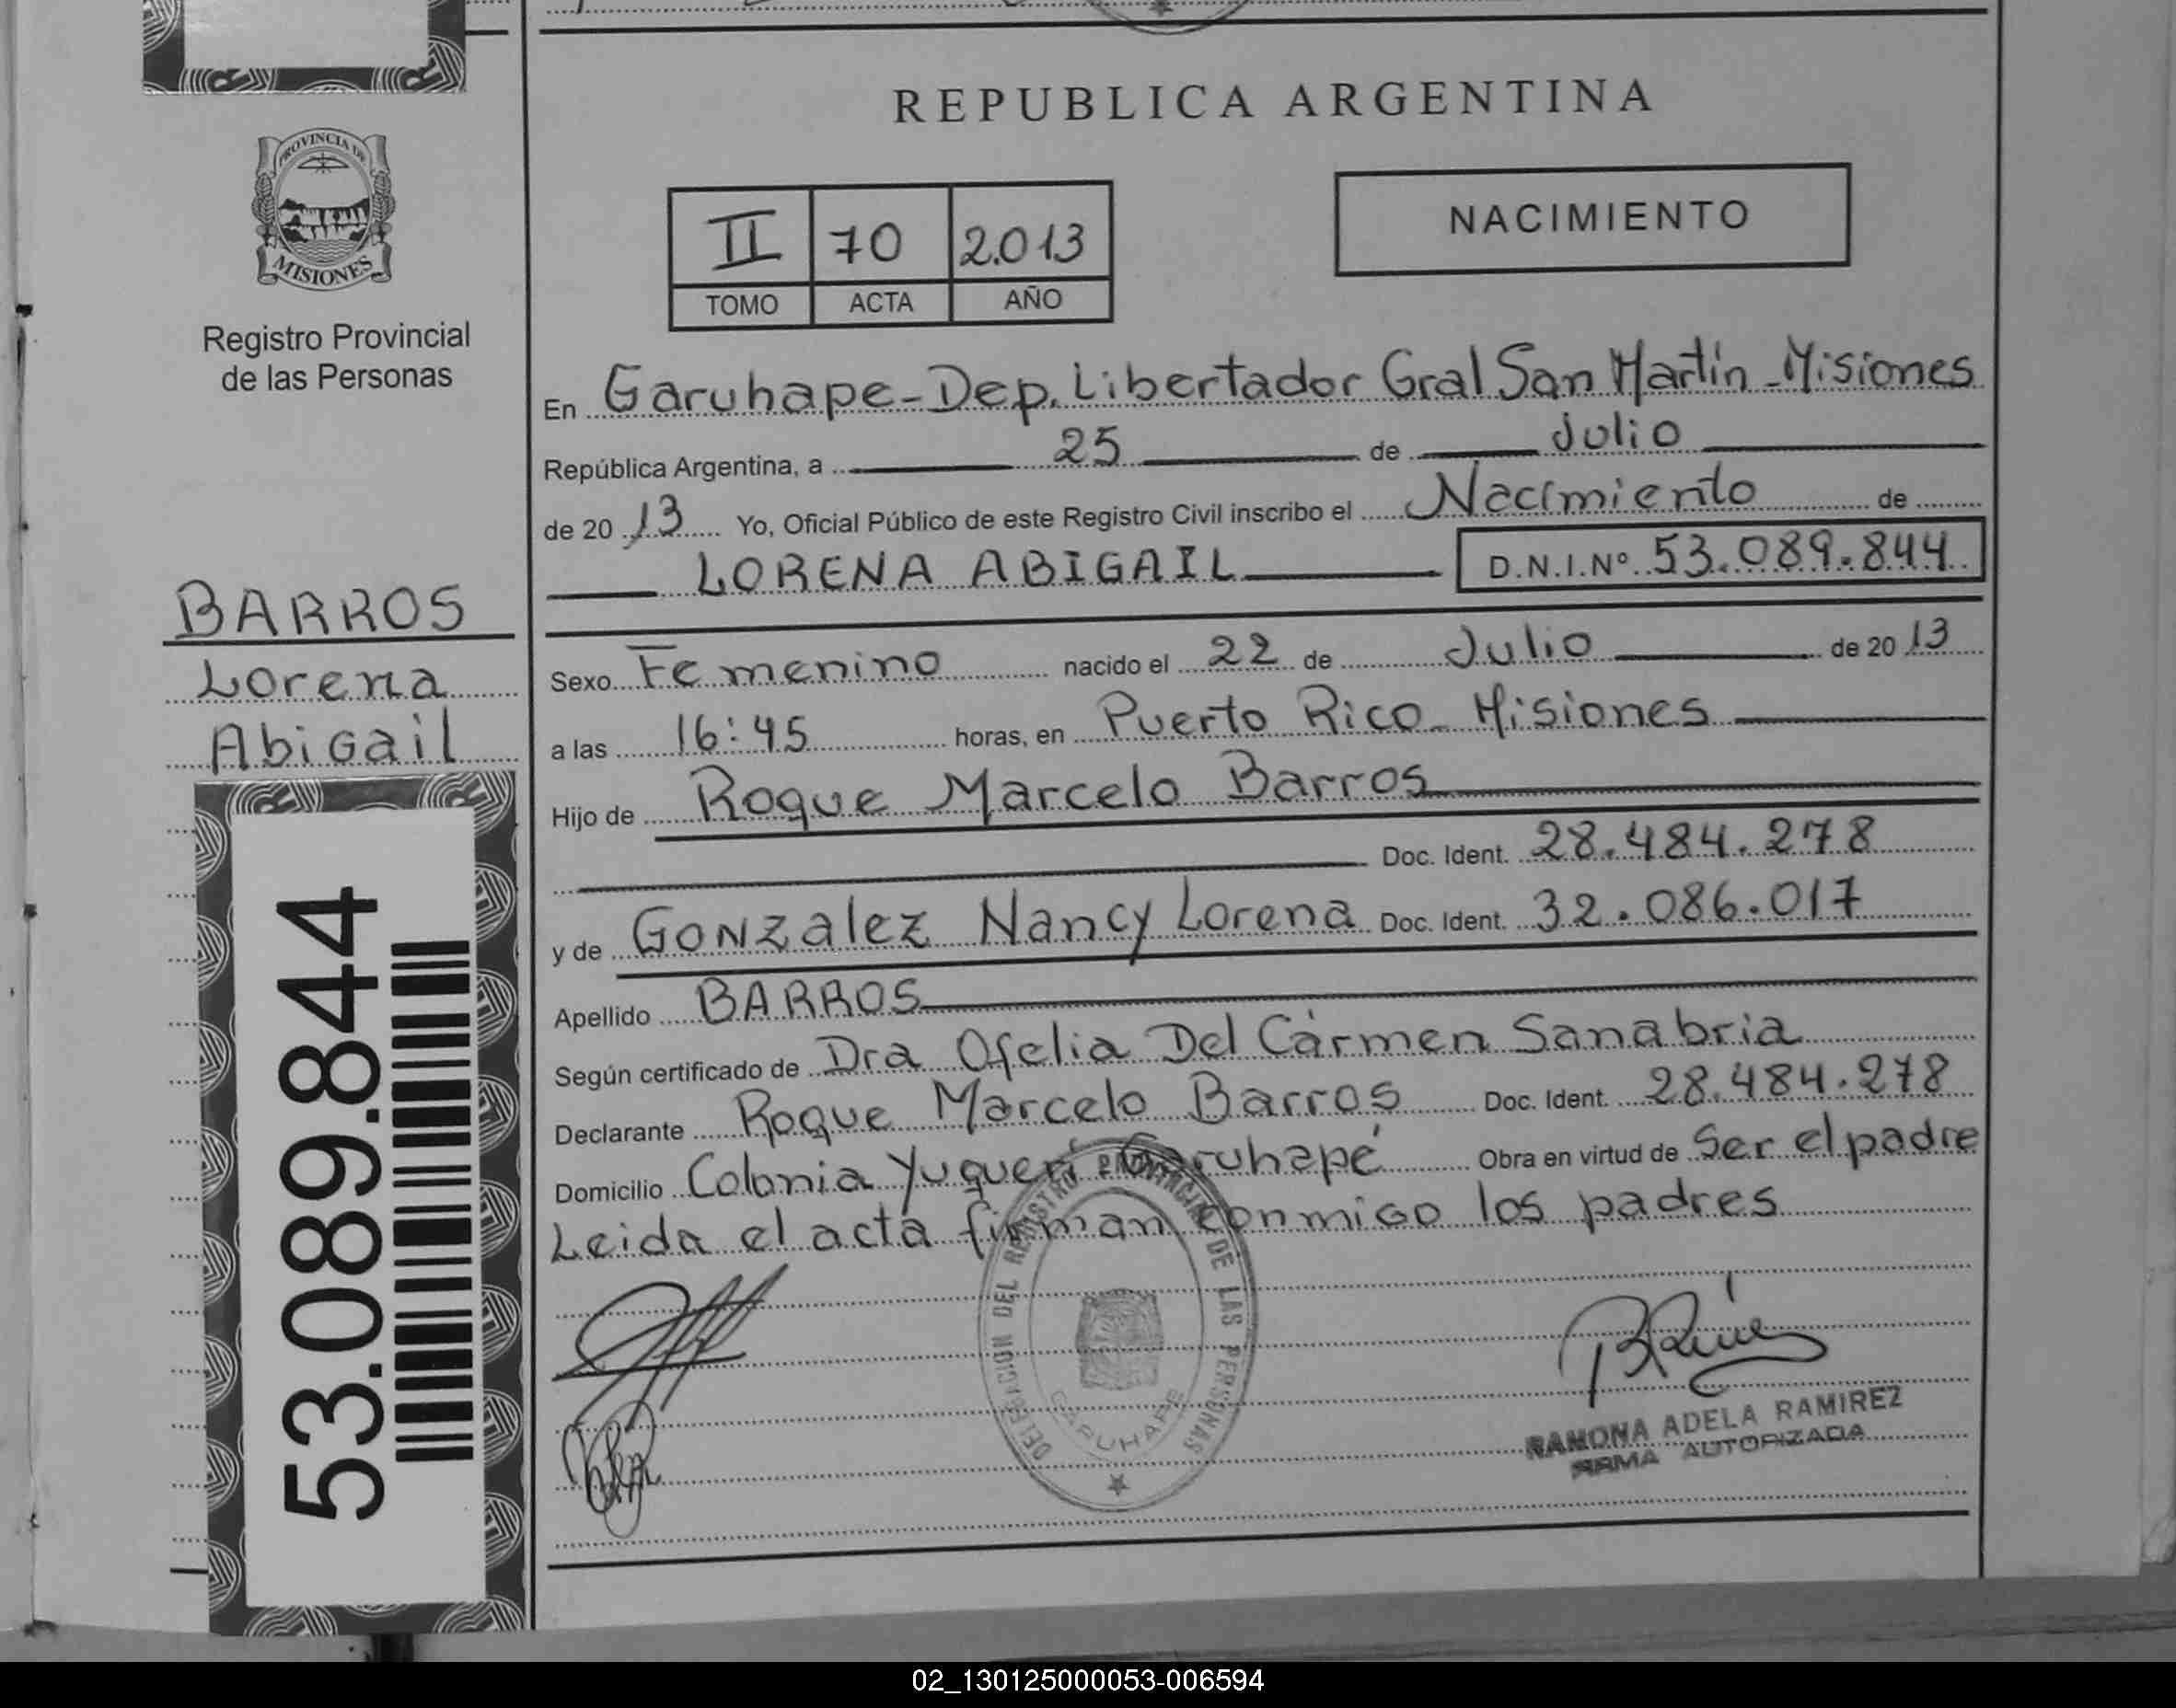 REPUBLICA ARGENTINA
PROVINCIA DE
MISIONES
Registro Provincial
de las Personas
II 70 2.013
TOMO ACTA AÑO
NACIMIENTO
En Garuhape-Dep. Libertador Gral San Martín - Misiones
República Argentina, a 25 de Julio
de 20 13 Yo, Oficial Público de este Registro Civil inscribo el Nacimiento de
LORENA ABIGAIL D.N.I.Nº 53.089.844
BARROS
Lorena
Abigail
Sexo Femenino nacido el 22 de Julio de 20 13
a las 16:45 horas, en Puerto Rico - Misiones
Hijo de Roque Marcelo Barros
Doc. Ident. 28.484.278
y de Gonzalez Nancy Lorena Doc. Ident. 32.086.017
Apellido BARROS
Según certificado de Dra Ofelia Del Carmen Sanabria
Declarante Roque Marcelo Barros Doc. Ident. 28.484.278
Domicilio Colonia Yuquerí Garuhapé Obra en virtud de Ser el padre
Leida el acta firman conmigo los padres
53.089.844
DELEGACION DEL REGISTRO PROVINCIAL DE LAS PERSONAS
GARUHAPE
RAMONA ADELA RAMIREZ
FIRMA AUTORIZADA
02_130125000053-006594